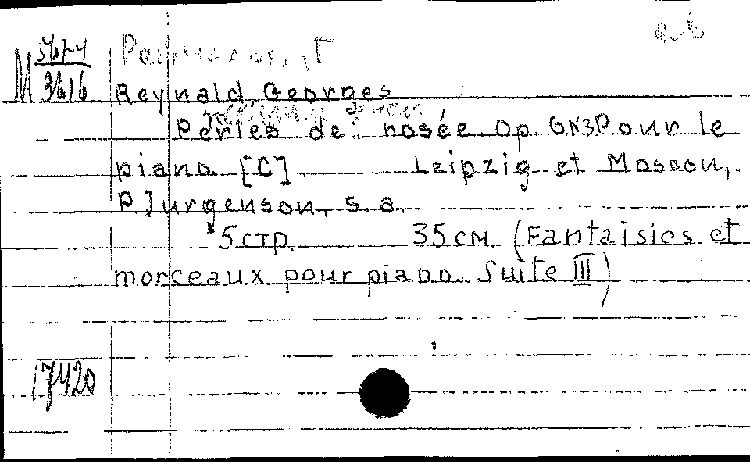 M 3674
3616
Reynald, Georges
Perles de rosée Op. 6 N3 Pour le
piano [C] Leipzig et Moscou,
P. Jurgenson, s. a.
5 стр. 35 см (Fantaisies et
morceaux pour piano Suite III)
17420